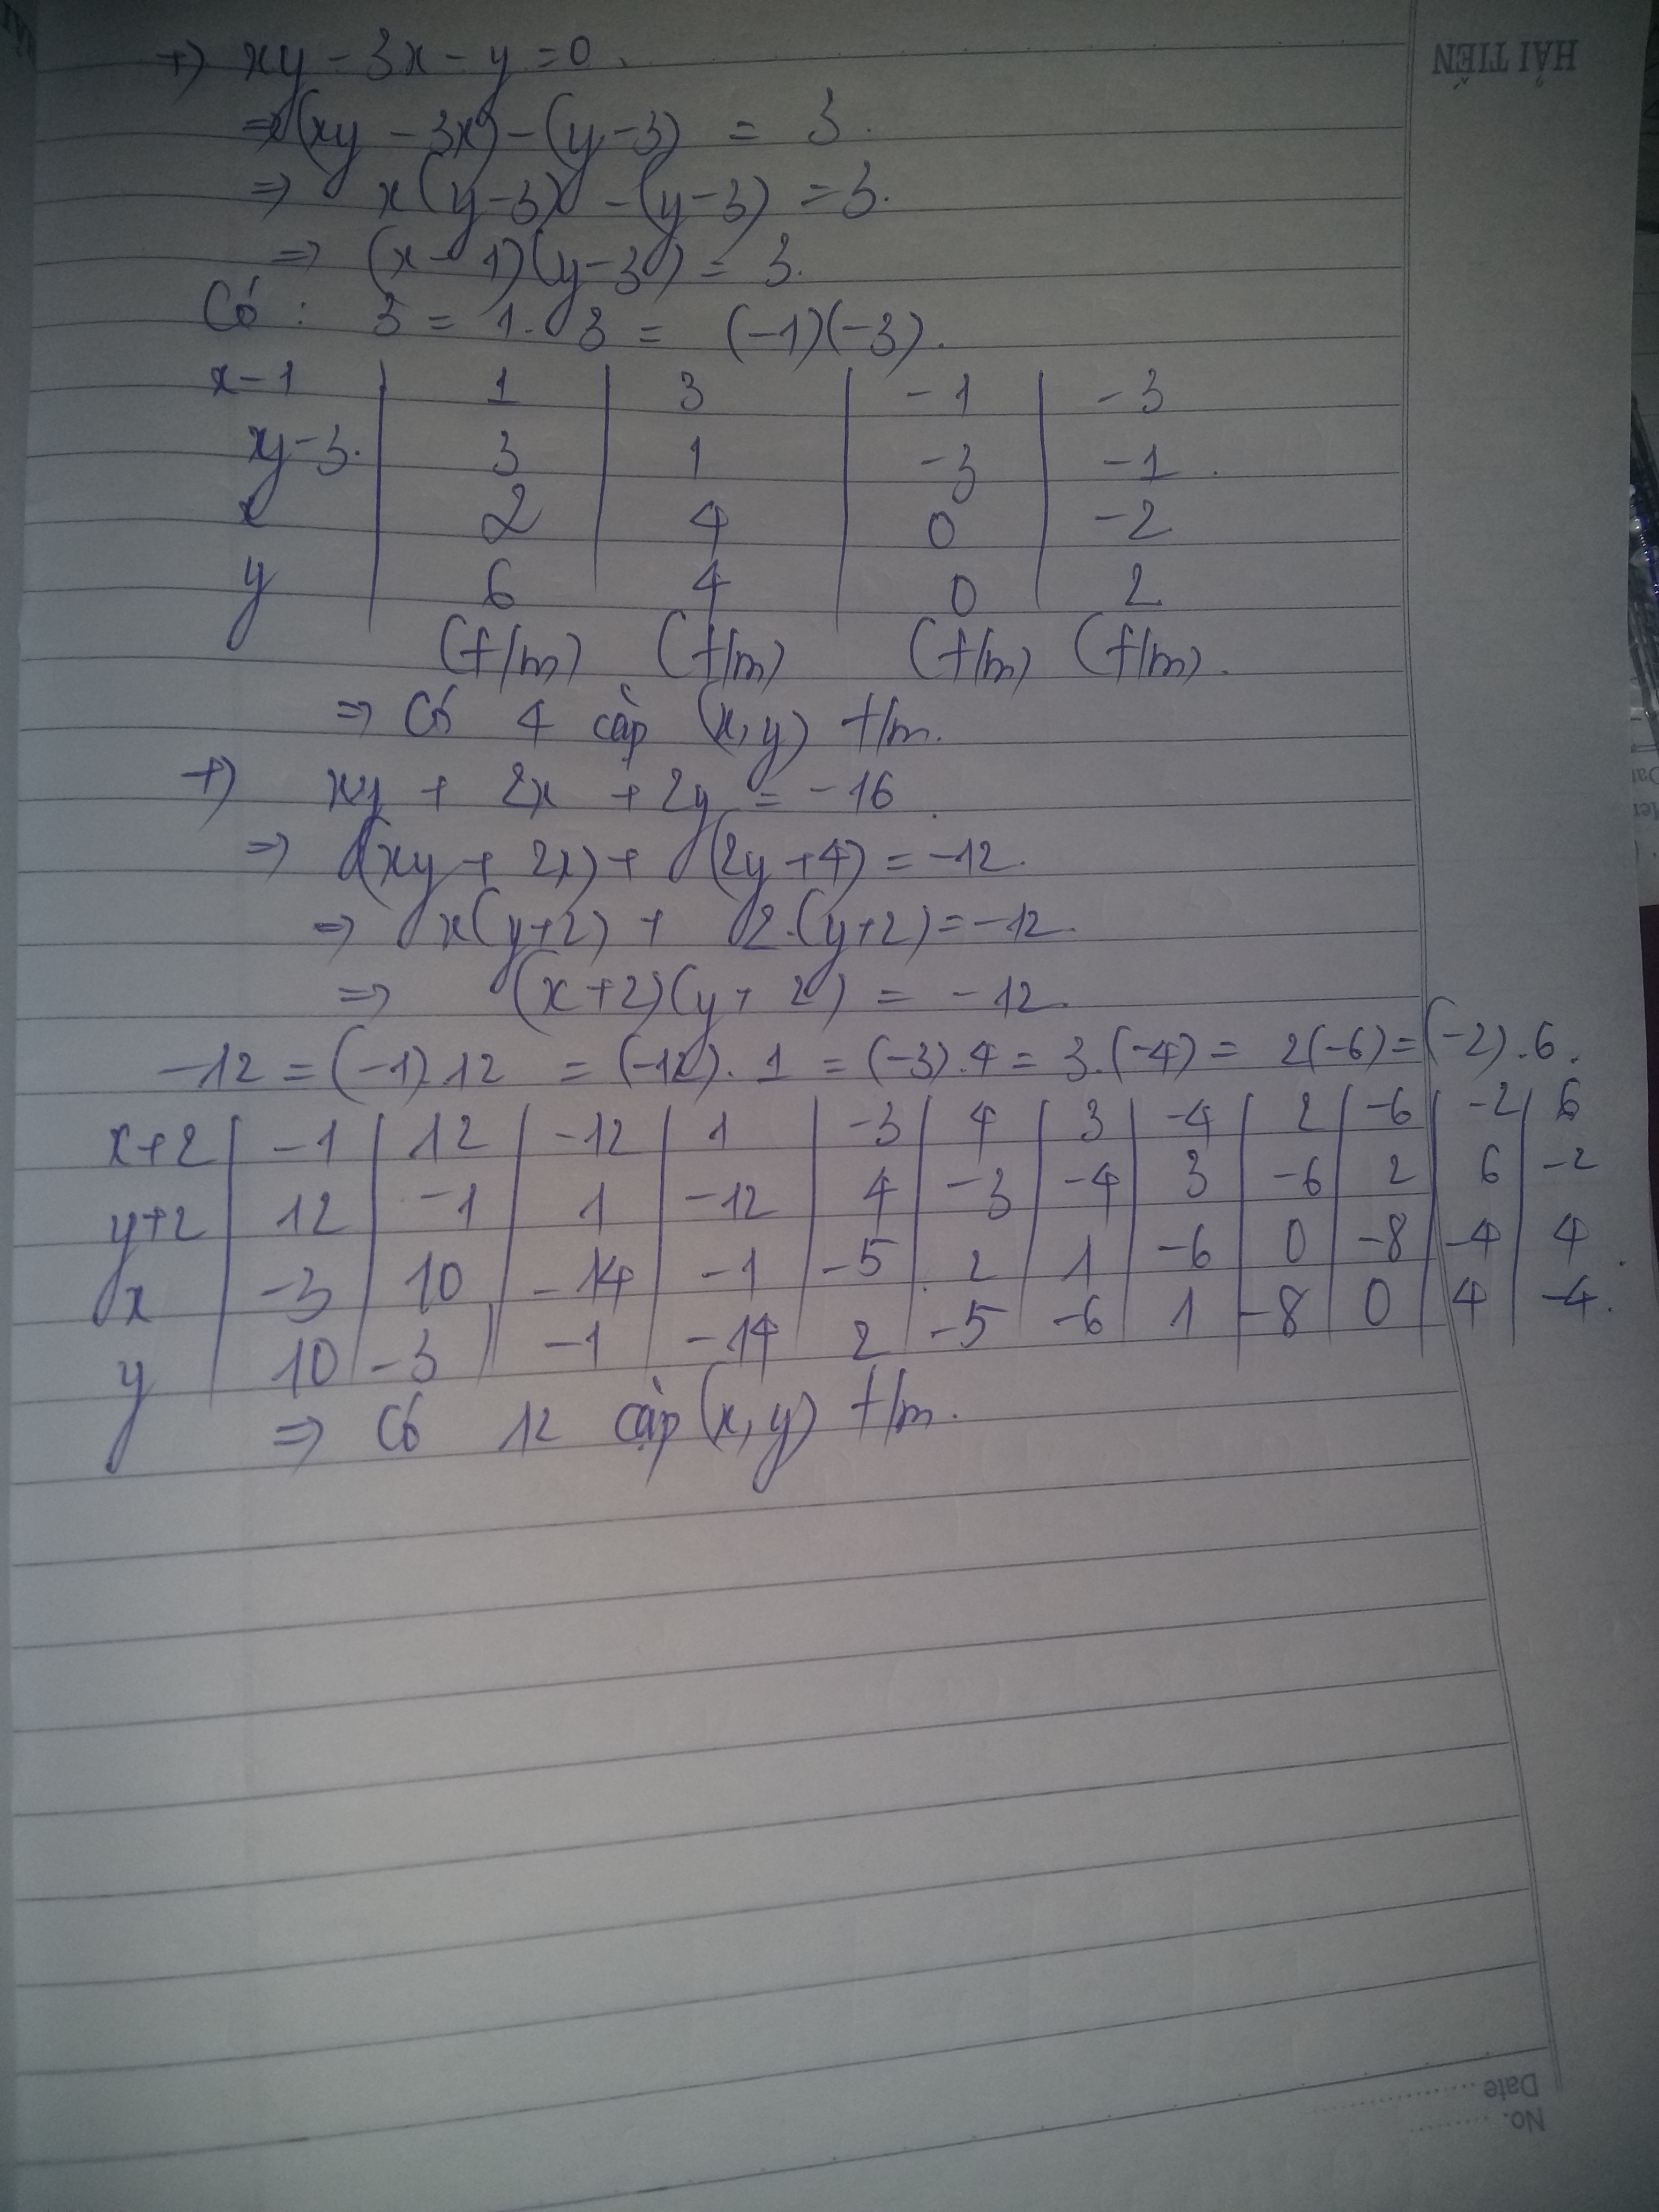 +) xy - 3x - y = 0.
=> (xy - 3x) - (y - 3) = 3.
=> x(y - 3) - (y - 3) = 3.
=> (x - 1)(y - 3) = 3.
Có : 3 = 1. 3 = (-1)(-3).
x-1 | 1 | 3 | -1 | -3
y-3. | 3 | 1 | -3 | -1.
x | 2 | 4 | 0 | -2
y | 6 | 4 | 0 | 2
(t/m) (t/m) (t/m) (t/m).
=> Có 4 cặp (x, y) t/m.
+) xy + 2x + 2y = -16.
=> (xy + 2x) + (2y + 4) = -12.
=> x(y+2) + 2.(y+2) = -12.
=> (x+2)(y+2) = -12.
-12 = (-1).12 = (-12). 1 = (-3).4 = 3.(-4) = 2(-6) = (-2).6.
x+2 | -1 | 12 | -12 | 1 | -3 | 4 | 3 | -4 | 2 | -6 | -2 | 6
y+2 | 12 | -1 | 1 | -12 | 4 | -3 | -4 | 3 | -6 | 2 | 6 | -2
x | -3 | 10 | -14 | -1 | -5 | 2 | 1 | -6 | 0 | -8 | -4 | 4.
y | 10 | -3 | -1 | -14 | 2 | -5 | -6 | 1 | -8 | 0 | 4 | -4.
=> Có 12 cặp (x, y) t/m.
HẢI TIẾN
Date
No.